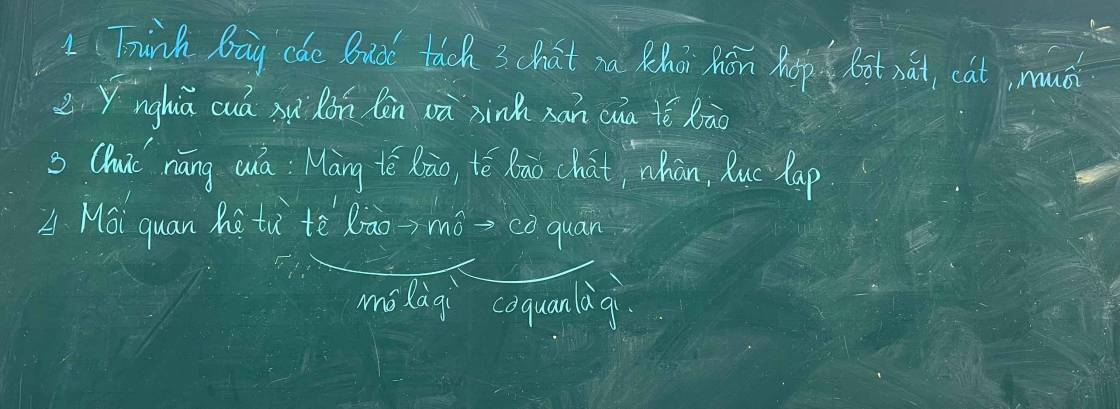 1 Trình bày các bước tách 3 chất ra khỏi hỗn hợp: bột sắt, cát, muối
2. Ý nghĩa của sự lớn lên và sinh sản của tế bào
3 Chức năng của: Màng tế bào, tế bào chất, nhân, lục lạp.
4. Mối quan hệ từ tế bào → mô → cơ quan
mô là gì cơ quan là gì.